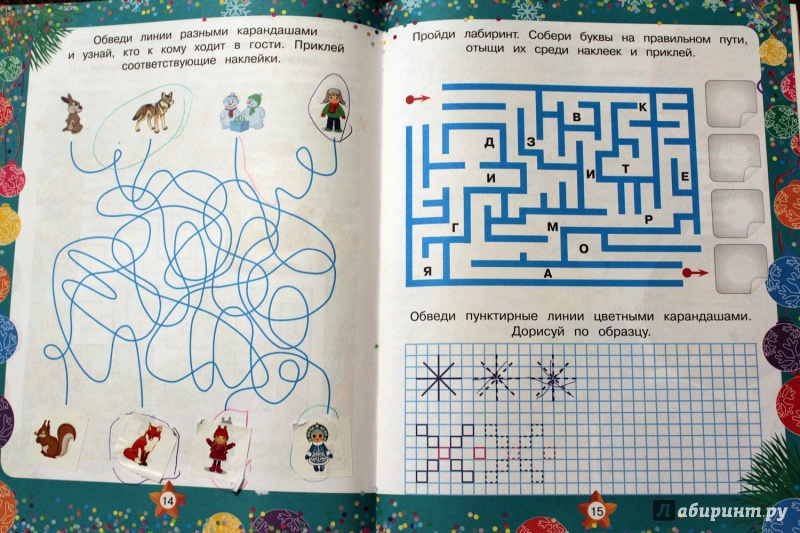 Обведи линии разными карандашами
и узнай, кто к кому ходит в гости. Приклей
соответствующие наклейки.
14
Пройди лабиринт. Собери буквы на правильном пути,
отыщи их среди наклеек и приклей.
К
В
Д З
И И Т Е
Р
Г М
О
Я А
Обведи пунктирные линии цветными карандашами.
Дорисуй по образцу.
15
Лабиринт.ру